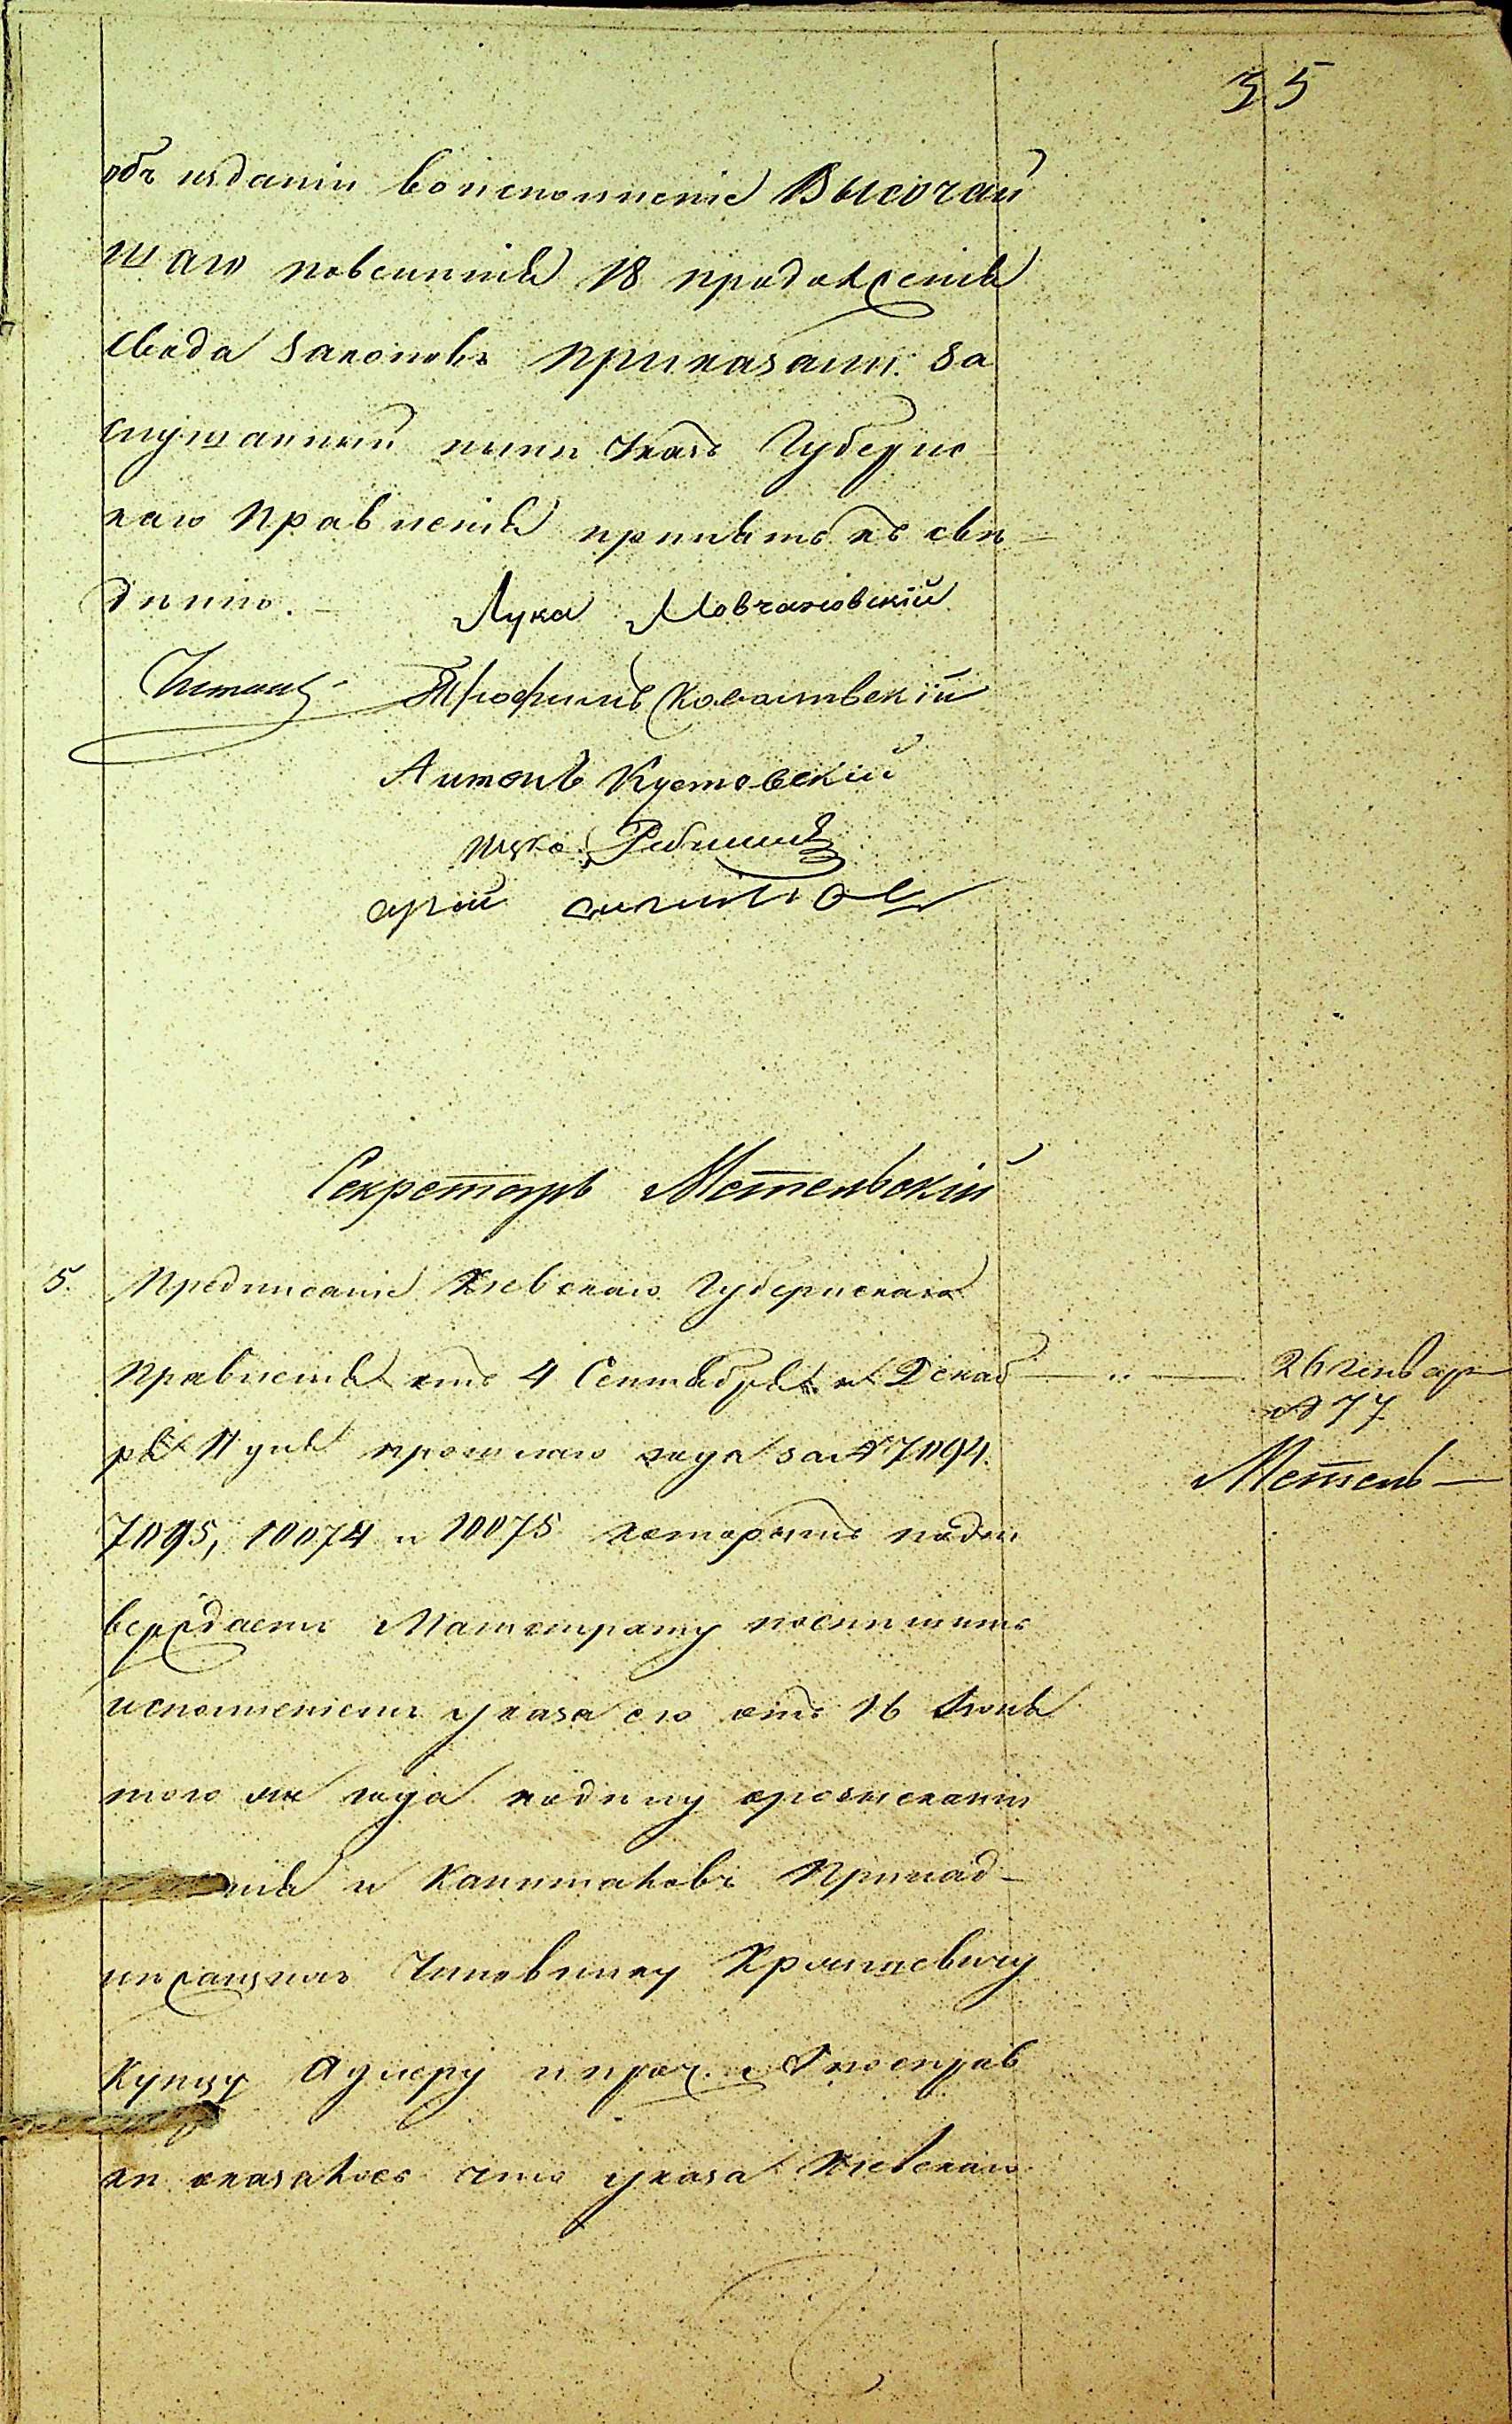 35
объ изданіи воисполненіе Высочай
шаго повеленія 18 продолженія
Свода Законовъ приказали: За
слушанный ныне Указъ Губернс
каго Правленія принять къ све
дению. — Лука Мовчановскій
Читалъ Трофимъ Ковалевскій
Антонъ Кустовскій
Ицко
Секретарь Метельскій
5. Предписаніе Кіевскаго Губернскаго
Правленія отъ 4 Сентября и Декаб
ря 11 дня прошлаго года за № 7094.
7095, 10074 и 10075 которымъ подт
верждаетъ Магистрату поспешить
исполненіемъ указа его отъ 16 Іюня
того же года по делу о розысканіи
и капиталовъ принад-
лежащихъ Чиновнику
Купцу Адлеру и проч. а По справ
ке оказалось что указа Кіевскаго
26 генвар
№ 77
Метель